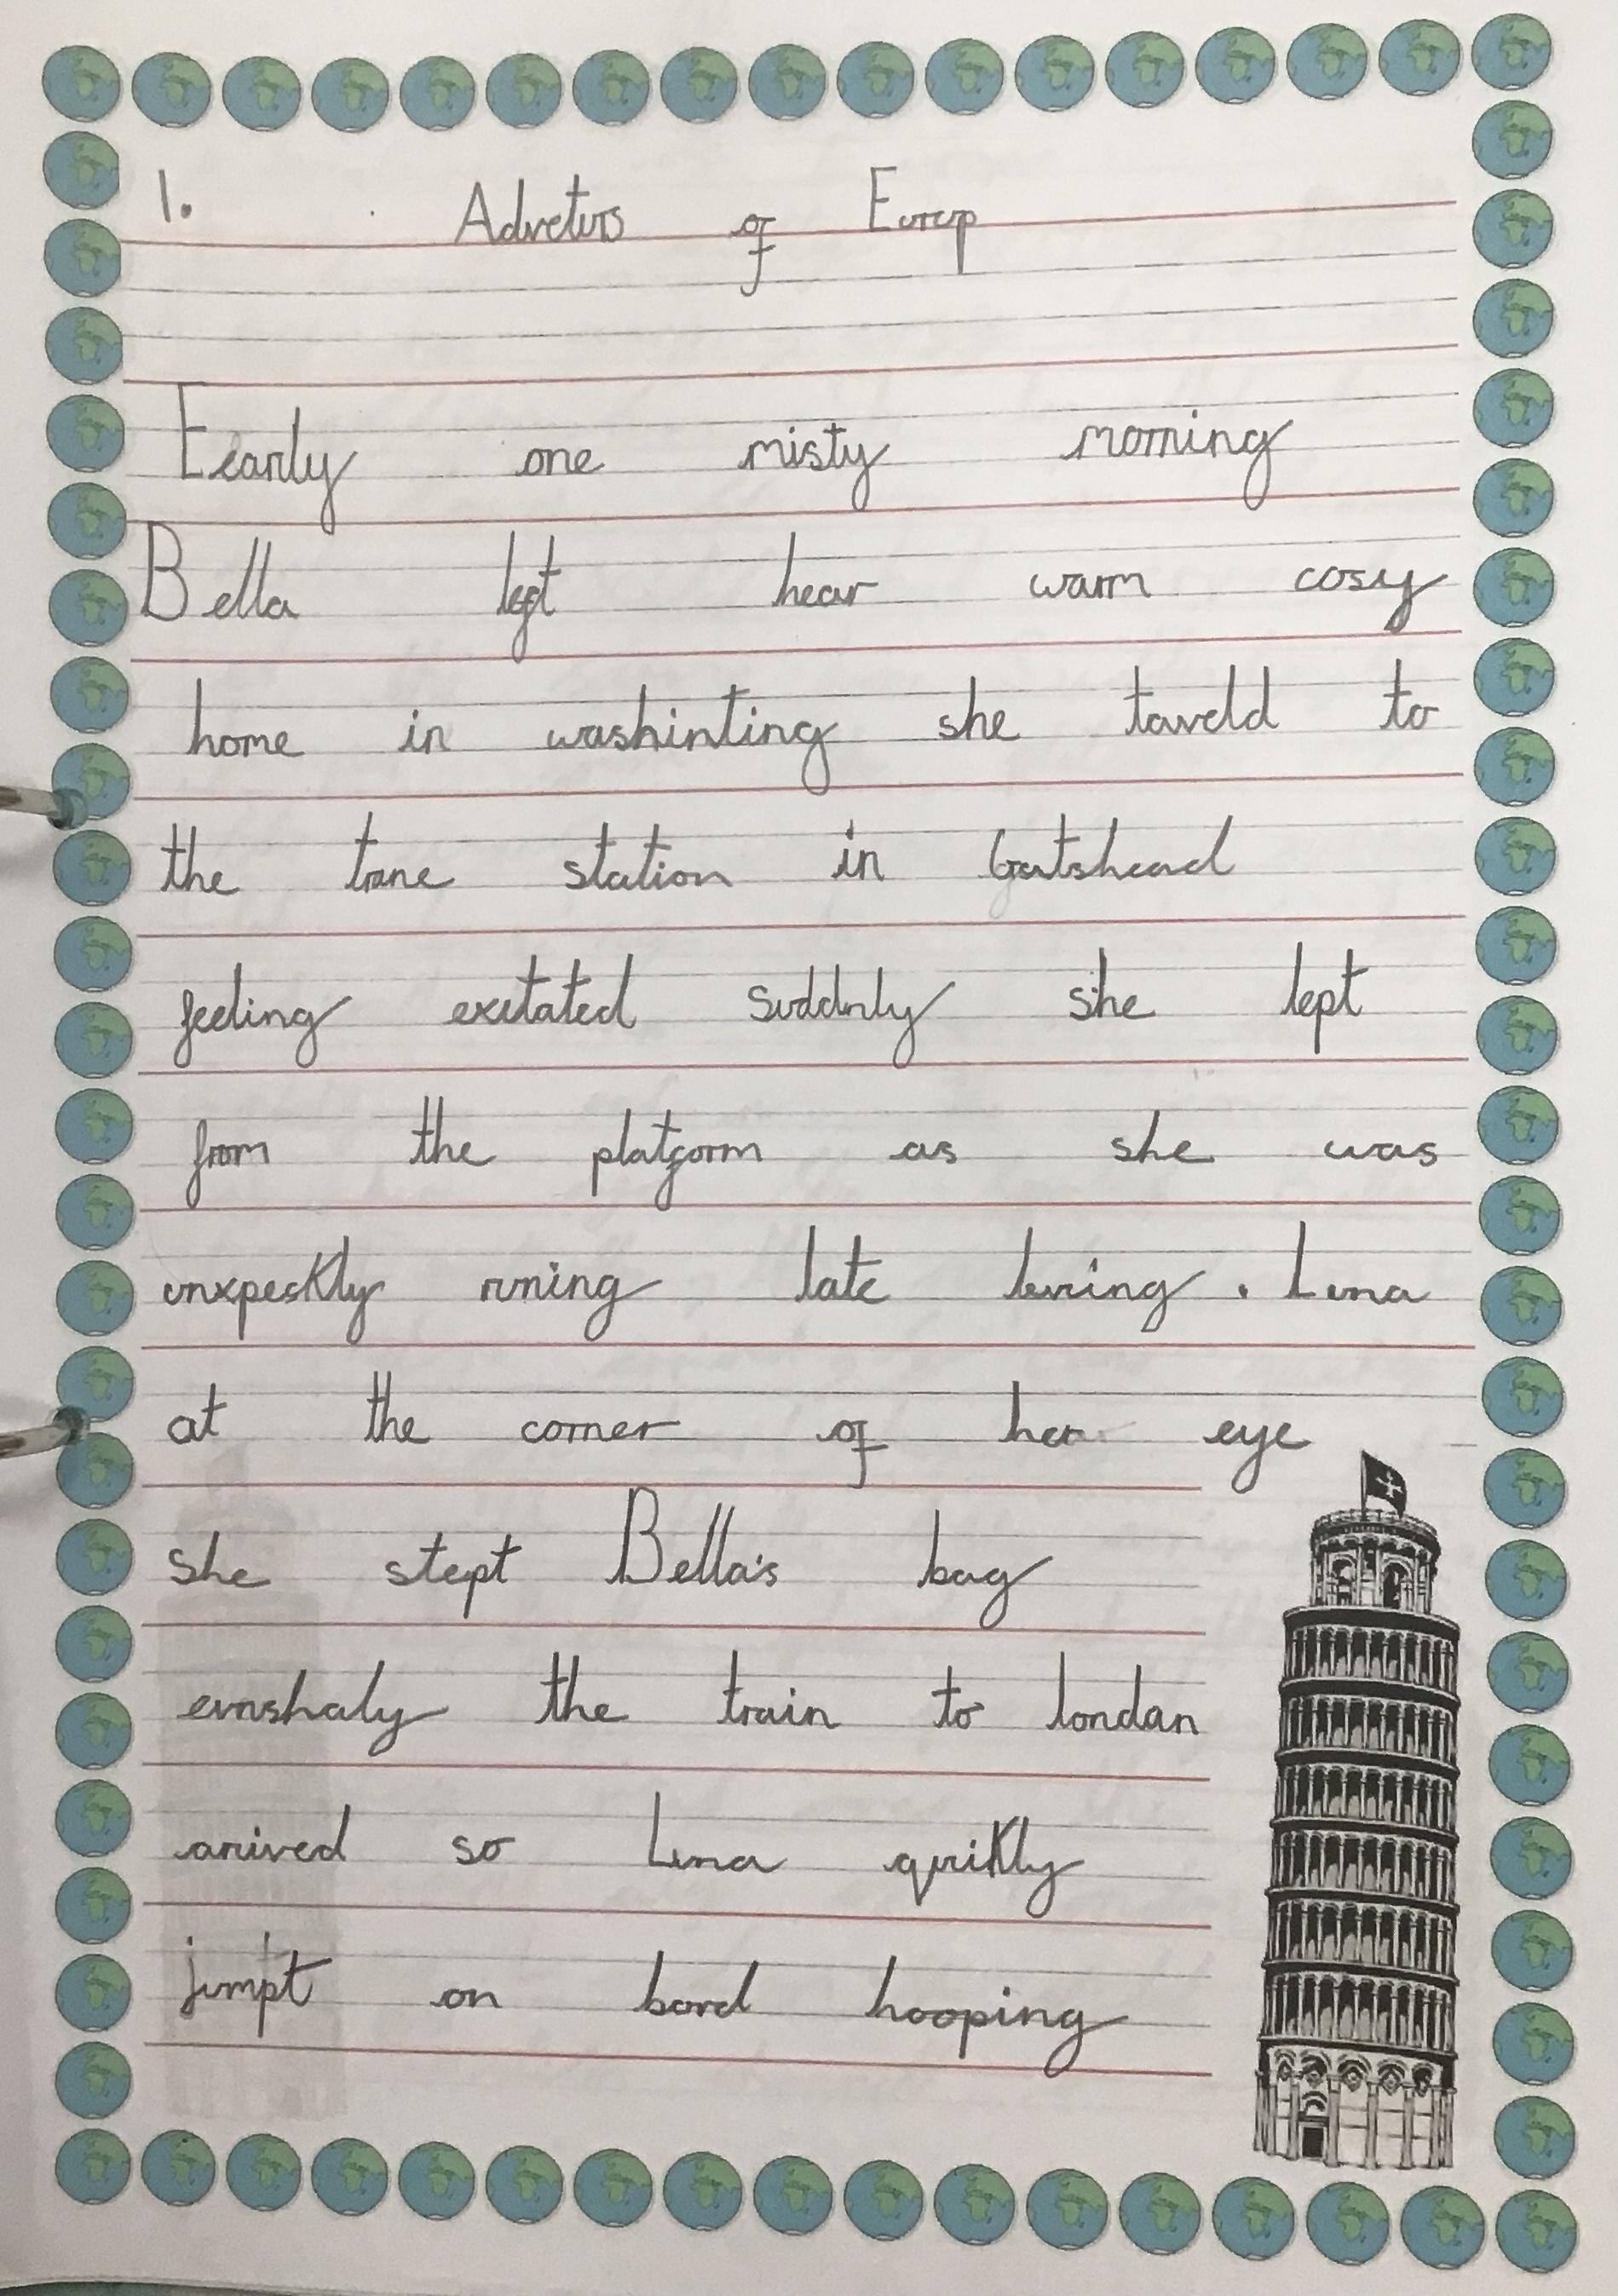 1. Adveturs of Europ
Eearly one misty morning
Bella left hear warm cosy
home in washinting she taveld to
the trane station in Gatshead
feeling exitated Suddnly she lept
from the platform as she was
unxpeskly runing late leving . Luna
at the corner of her eye
she stept Bella's bag
evnshaly the train to londan
arived so Luna quikly
jumpt on bord hooping